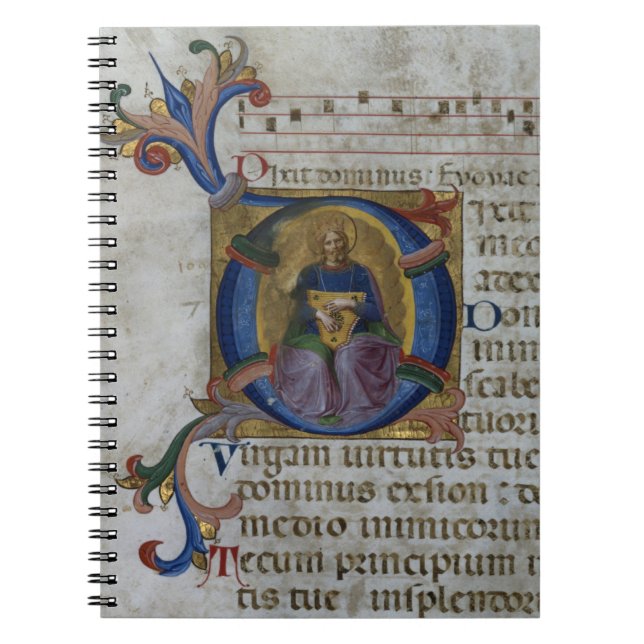 Dixit dominus: Evovae
D
ixit
Dom
inim
scabe
tuori
Virgam virtutis tue
dominus exsion : de
medio inimicorum
Tecum principium in
tis tue insplendor